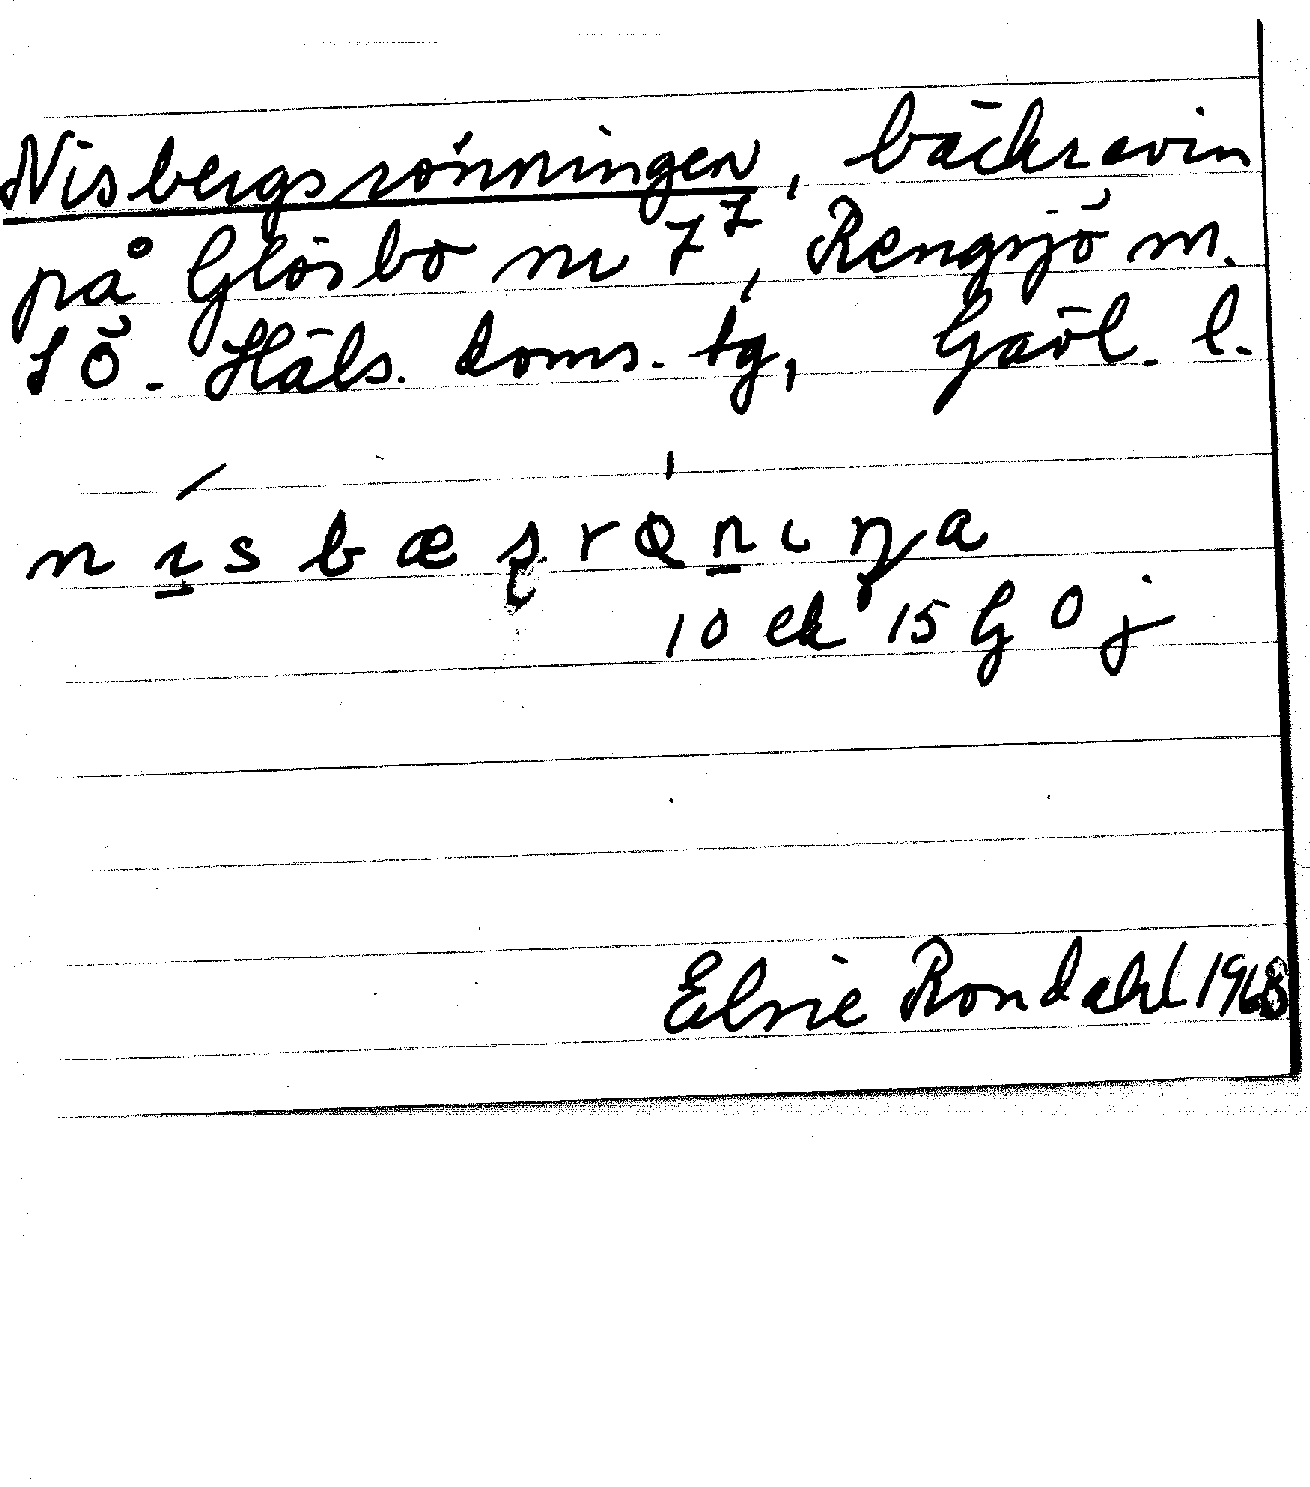 Nisbergsrönningen, bäckravin
på Glösbo nr 7⁷, Rengsjö sn.
SÖ. Häls. doms. tg, Gävl. l.
10 ek 15 G 0 j
Elsie Rondahl 1968